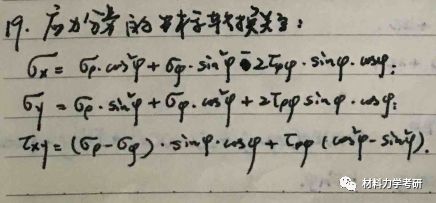 19. 应力分量的坐标转换关系:
σx = σρ·cos²φ + σφ·sin²φ - 2τρφ·sinφ·cosφ;
σy = σρ·sin²φ + σφ·cos²φ + 2τρφ sinφ·cosφ;
τxy = (σρ-σφ)·sinφ·cosφ + τρφ (cos²φ - sin²φ).
材料力学考研